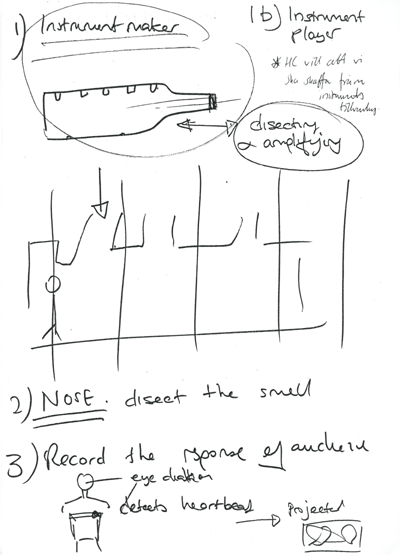 1) Instrument maker
1b) Instrument
player
* HC vill att vi
ska skaffa från
instruments
disecting
& amplifying
2) NOSE. disect the smell
3) Record the response of audience
eye dilation
detects heartbeat
projected